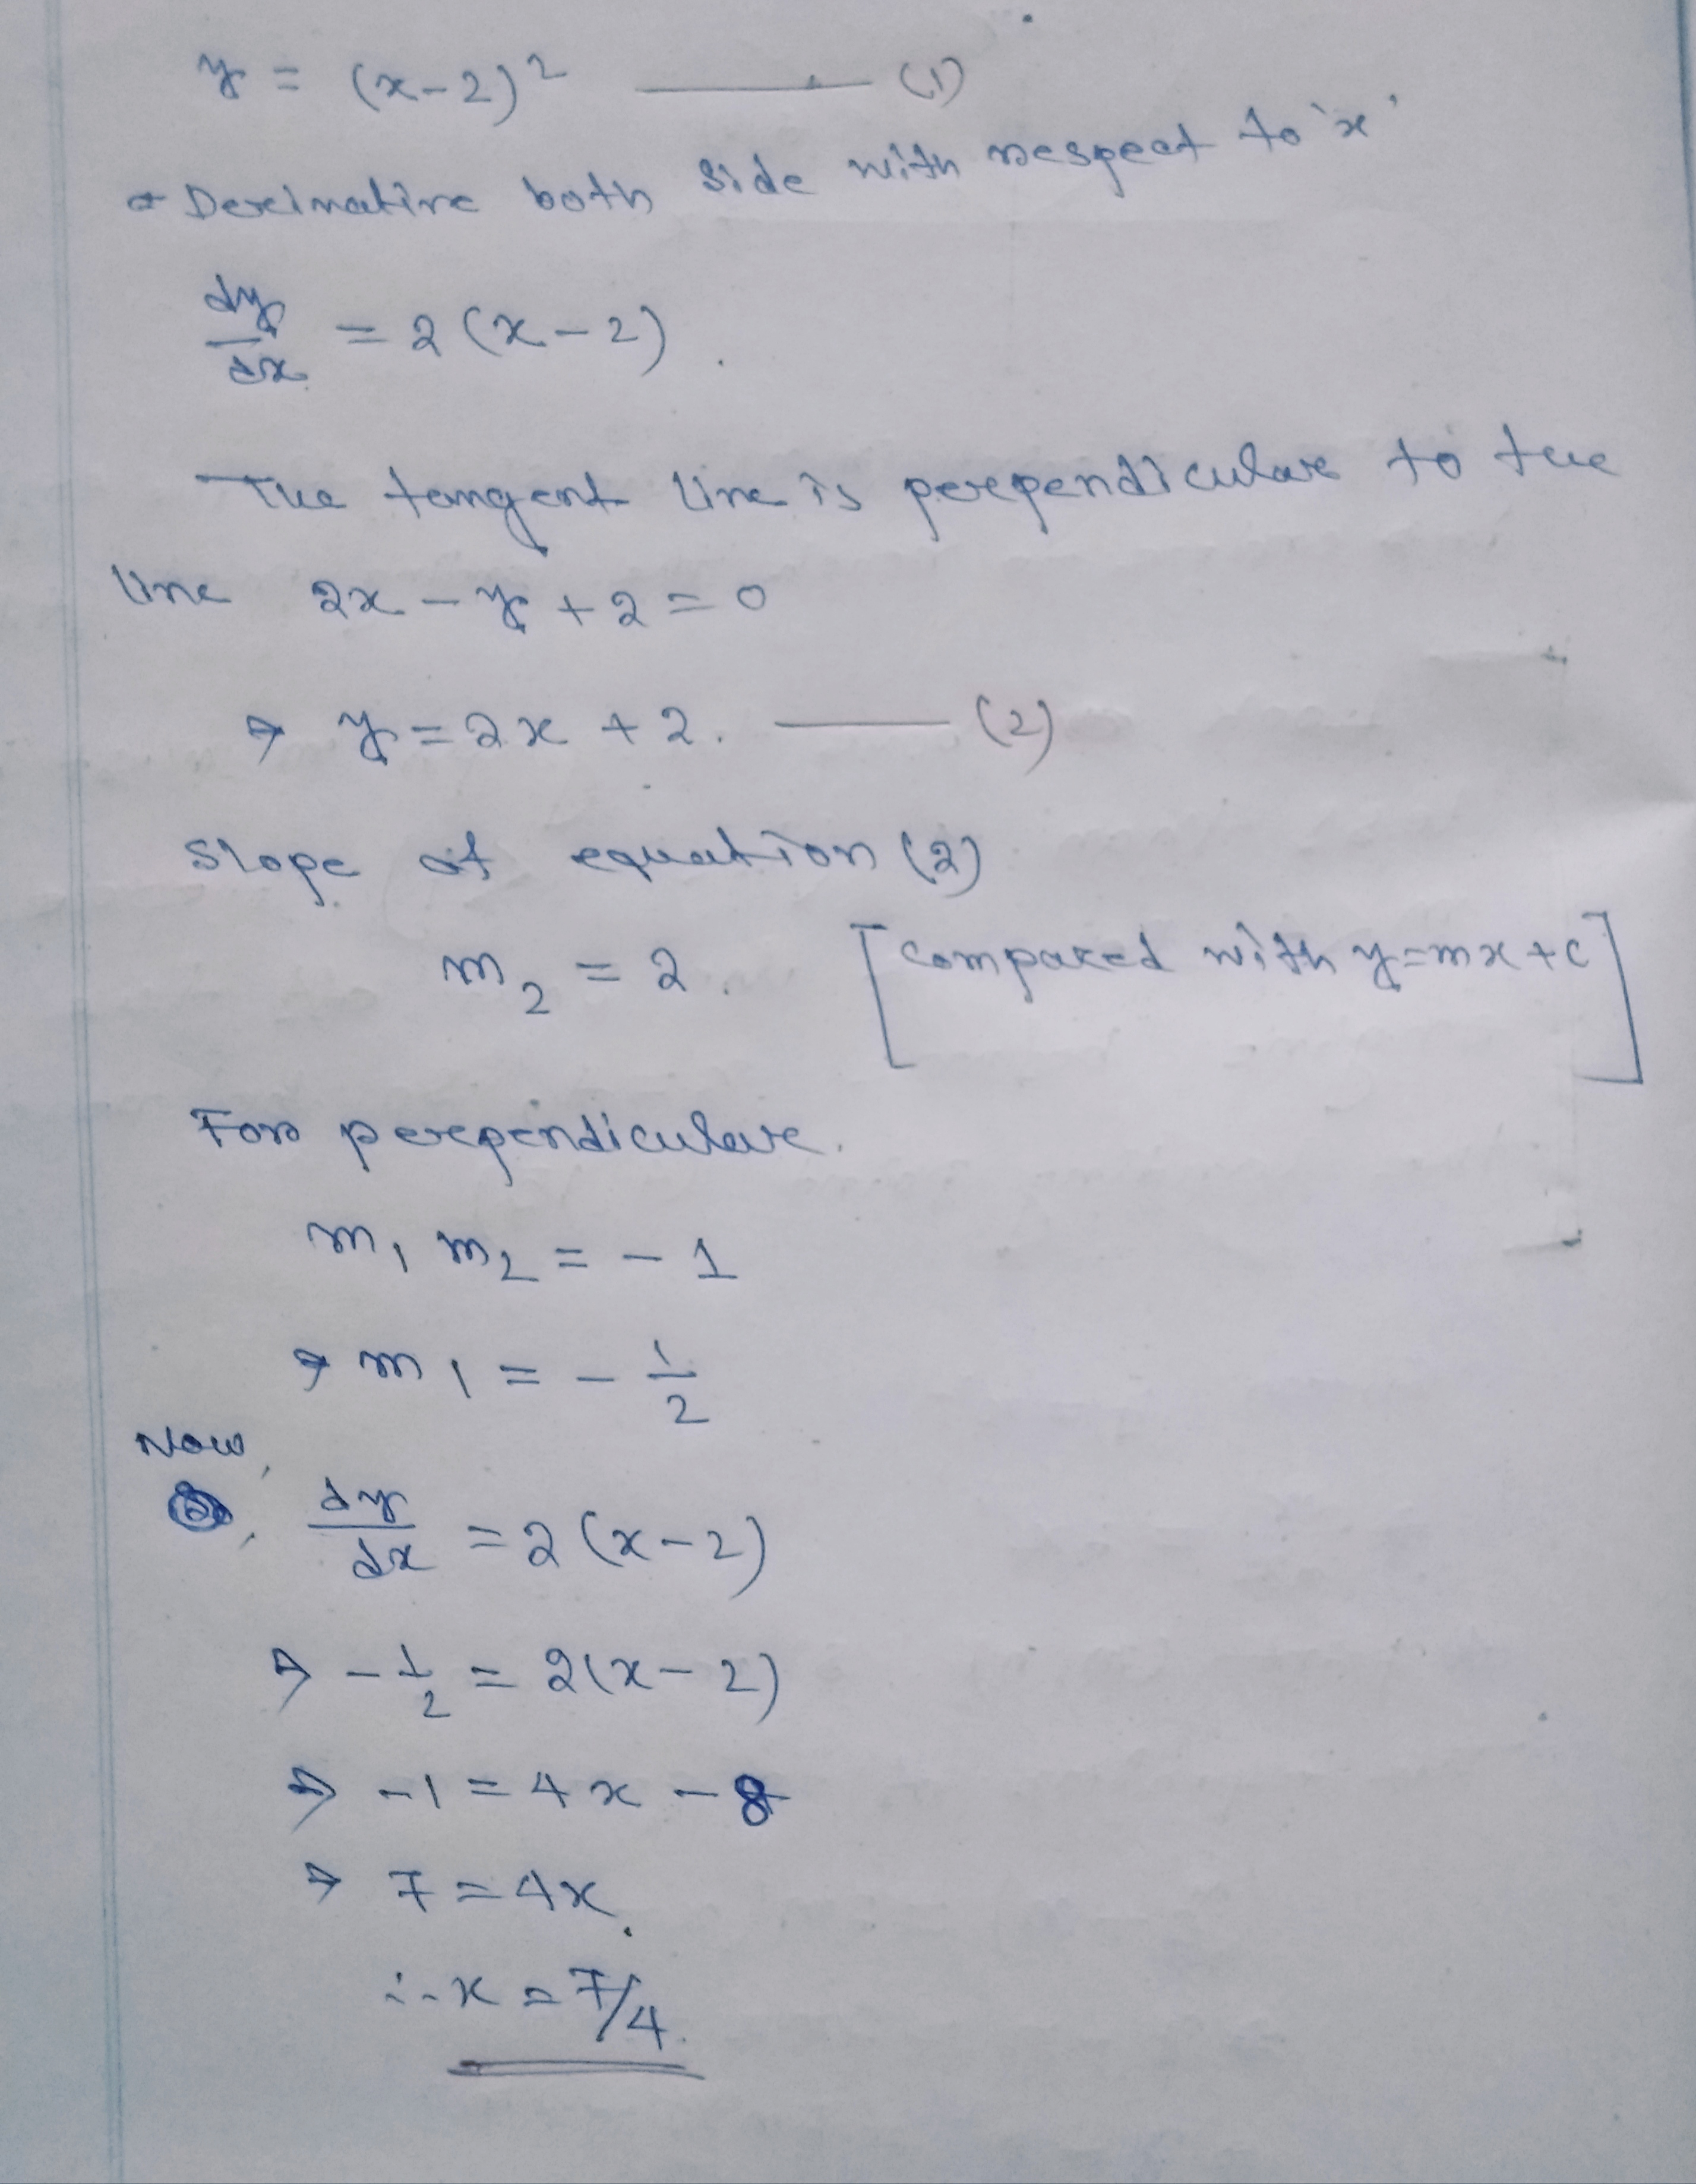 y = (x-2)² ——— (1)
⇒ Derivative both side with respect to 'x'
dy/dx = 2(x-2).
The tangent line is perpendicular to the
line 2x - y + 2 = 0
⇒ y = 2x + 2. ——— (2)
Slope of equation (2)
m₂ = 2. [compared with y=mx+c]
For perpendicular.
m₁ m₂ = -1
⇒ m₁ = -1/2
Now,
dy/dx = 2(x-2)
⇒ -1/2 = 2(x-2)
⇒ -1 = 4x - 8
⇒ 7 = 4x.
∴ x = 7/4.